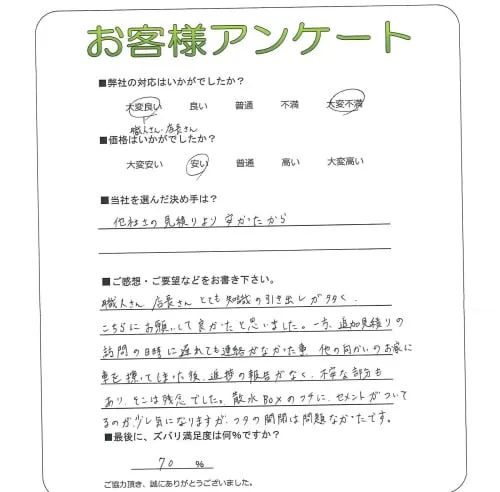 お客様アンケート
■弊社の対応はいかがでしたか?
大変良い 良い 普通 不満 大変不満
職人さん・店長さん
■価格はいかがでしたか?
大変安い 安い 普通 高い 大変高い
■当社を選んだ決め手は?
他社さの見積りより安かったから
■ご感想・ご要望などをお書き下さい。
職人さん 店長さん とても知識の引き出しが多く、
こちらにお願いして良かったと思いました。一方、追加見積りの
訪問の日時に遅れても連絡がなかった事、他の向かいのお家に
車を擦ってしまった後、進捗の報告がなく、不安な部分も
あり、そこは残念でした。散水Boxのフチに、セメントがついて
るのが、少し気になりますが、フタの開閉は問題なかったです。
■最後に、ズバリ満足度は何%ですか?
70 %
ご協力頂き、誠にありがとうございました。